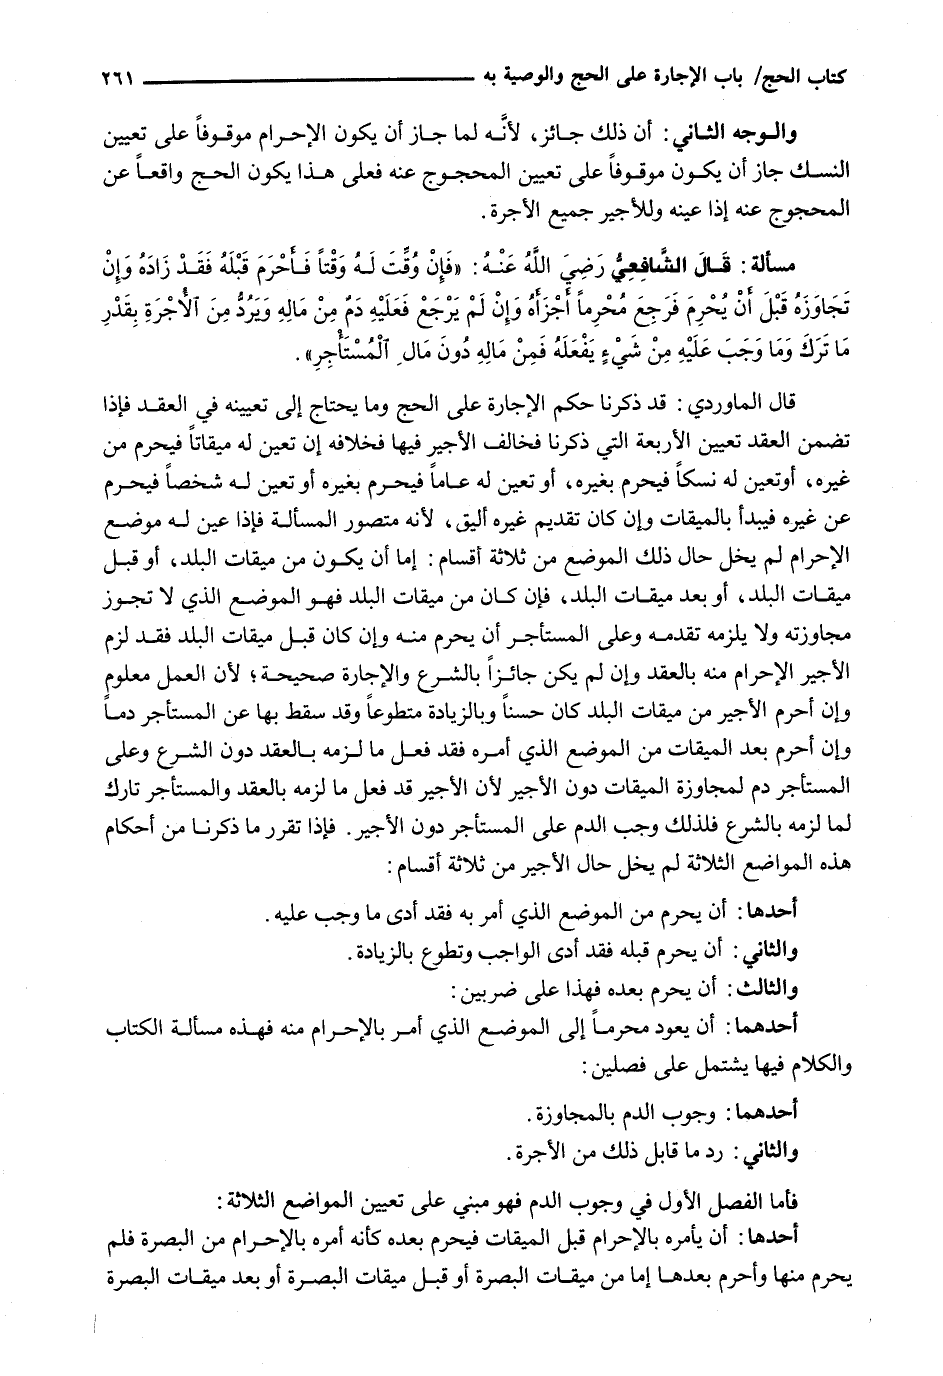 كتاب الحج/ باب الإجارة على الحج والوصية به ــــــــــــــــــــ ٢٦١
والوجه الثاني: أن ذلك جائز، لأنَّه لما جاز أن يكون الإحرام موقوفاً على تعيين
النسك جاز أن يكون موقوفاً على تعيين المحجوج عنه فعلى هذا يكون الحج واقعاً عن
المحجوج عنه إذا عينه وللأجير جميع الأجرة.
مسألة: قَالَ الشَّافِعِيُّ رَضِيَ اللَّهُ عَنْهُ: «فَإِنْ وُقِّتَ لَهُ وَقْتاً فَأَحْرَمَ قَبْلَهُ فَقَدْ زَادَهُ وَإِنْ
تَجَاوَزَهُ قَبْلَ أَنْ يُحْرِمَ فَرَجَعَ مُحْرِماً أَجْزَأَهُ وَإِنْ لَمْ يَرْجَعْ فَعَلَيْهِ دَمٌ مِنْ مَالِهِ وَيَرُدُّ مِنَ ٱلأُجْرَةِ بِقَدْرِ
مَا تَرَكَ وَمَا وَجَبَ عَلَيْهِ مِنْ شَيْءٍ يَفْعَلَهُ فَمِنْ مَالِهِ دُونَ مَالِ ٱلْمُسْتَأْجِرِ».
قال الماوردي: قد ذكرنا حكم الإجارة على الحج وما يحتاج إلى تعيينه في العقد فإذا
تضمن العقد تعيين الأربعة التي ذكرنا فخالف الأجير فيها فخلافه إن تعين له ميقاتاً فيحرم من
غيره، أوتعين له نسكاً فيحرم بغيره، أو تعين له عاماً فيحرم بغيره أو تعين له شخصاً فيحرم
عن غيره فيبدأ بالميقات وإن كان تقديم غيره أليق، لأنه متصور المسألة فإذا عين له موضع
الإحرام لم يخل حال ذلك الموضع من ثلاثة أقسام: إما أن يكون من ميقات البلد، أو قبل
ميقات البلد، أو بعد ميقات البلد، فإن كان من ميقات البلد فهو الموضع الذي لا تجوز
مجاوزته ولا يلزمه تقدمه وعلى المستأجر أن يحرم منه وإن كان قبل ميقات البلد فقد لزم
الأجير الإحرام منه بالعقد وإن لم يكن جائزاً بالشرع والإجارة صحيحة؛ لأن العمل معلوم
وإن أحرم الأجير من ميقات البلد كان حسناً وبالزيادة متطوعاً وقد سقط بها عن المستأجر دماً
وإن أحرم بعد الميقات من الموضع الذي أمره فقد فعل ما لزمه بالعقد دون الشرع وعلى
المستأجر دم لمجاوزة الميقات دون الأجير لأن الأجير قد فعل ما لزمه بالعقد والمستأجر تارك
لما لزمه بالشرع فلذلك وجب الدم على المستأجر دون الأجير. فإذا تقرر ما ذكرنا من أحكام
هذه المواضع الثلاثة لم يخل حال الأجير من ثلاثة أقسام:
أحدها: أن يحرم من الموضع الذي أمر به فقد أدى ما وجب عليه.
والثاني: أن يحرم قبله فقد أدى الواجب وتطوع بالزيادة.
والثالث: أن يحرم بعده فهذا على ضربين:
أحدهما: أن يعود محرماً إلى الموضع الذي أمر بالإحرام منه فهذه مسألة الكتاب
والكلام فيها يشتمل على فصلين:
أحدهما: وجوب الدم بالمجاوزة.
والثاني: رد ما قابل ذلك من الأجرة.
فأما الفصل الأول في وجوب الدم فهو مبني على تعيين المواضع الثلاثة:
أحدها: أن يأمره بالإحرام قبل الميقات فيحرم بعده كأنه أمره بالإحرام من البصرة فلم
يحرم منها وأحرم بعدها إما من ميقات البصرة أو قبل ميقات البصرة أو بعد ميقات البصرة